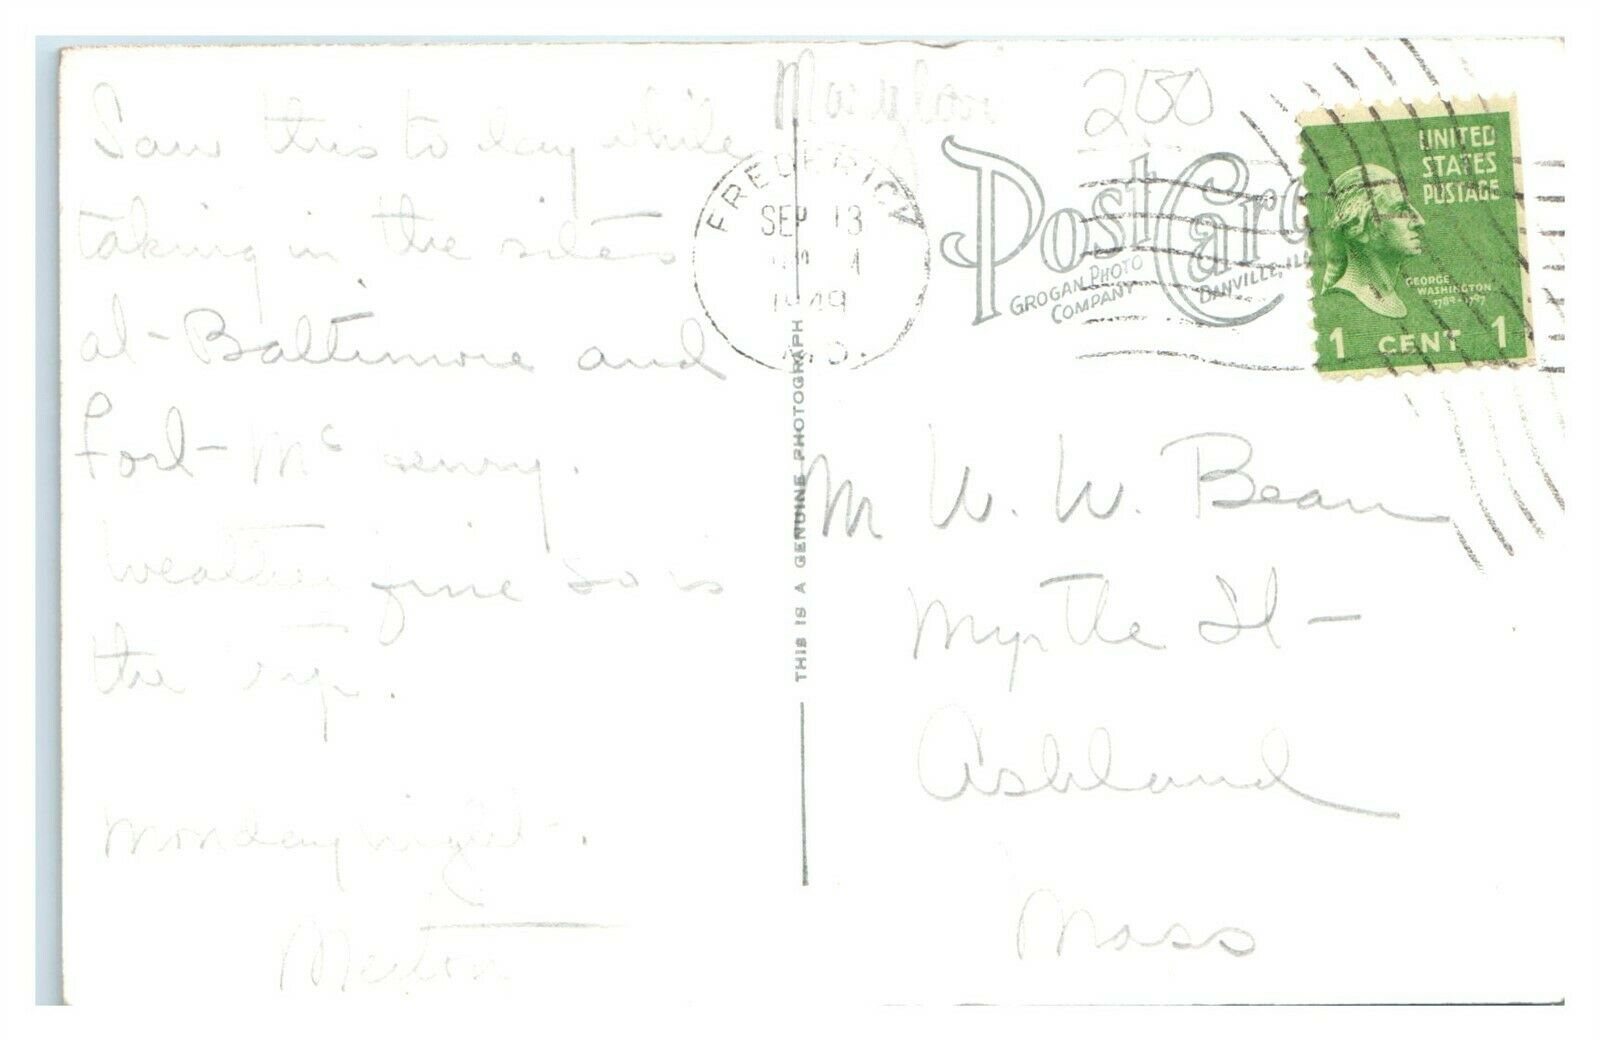 Saw this to day while
taking in the sites
at Baltimore and
Fort McHenry.
Weather fine so is
the trip.
Monday night.
Merton
Maryland
200
FREDERICK
SEP 13
1949
MD.
Post Card
GROGAN PHOTO
COMPANY
DANVILLE, ILL
THIS IS A GENUINE PHOTOGRAPH
UNITED
STATES
POSTAGE
GEORGE
WASHINGTON
1789-1797
1 CENT 1
M W. W. Bean
Myrtle St
Ashland
Mass